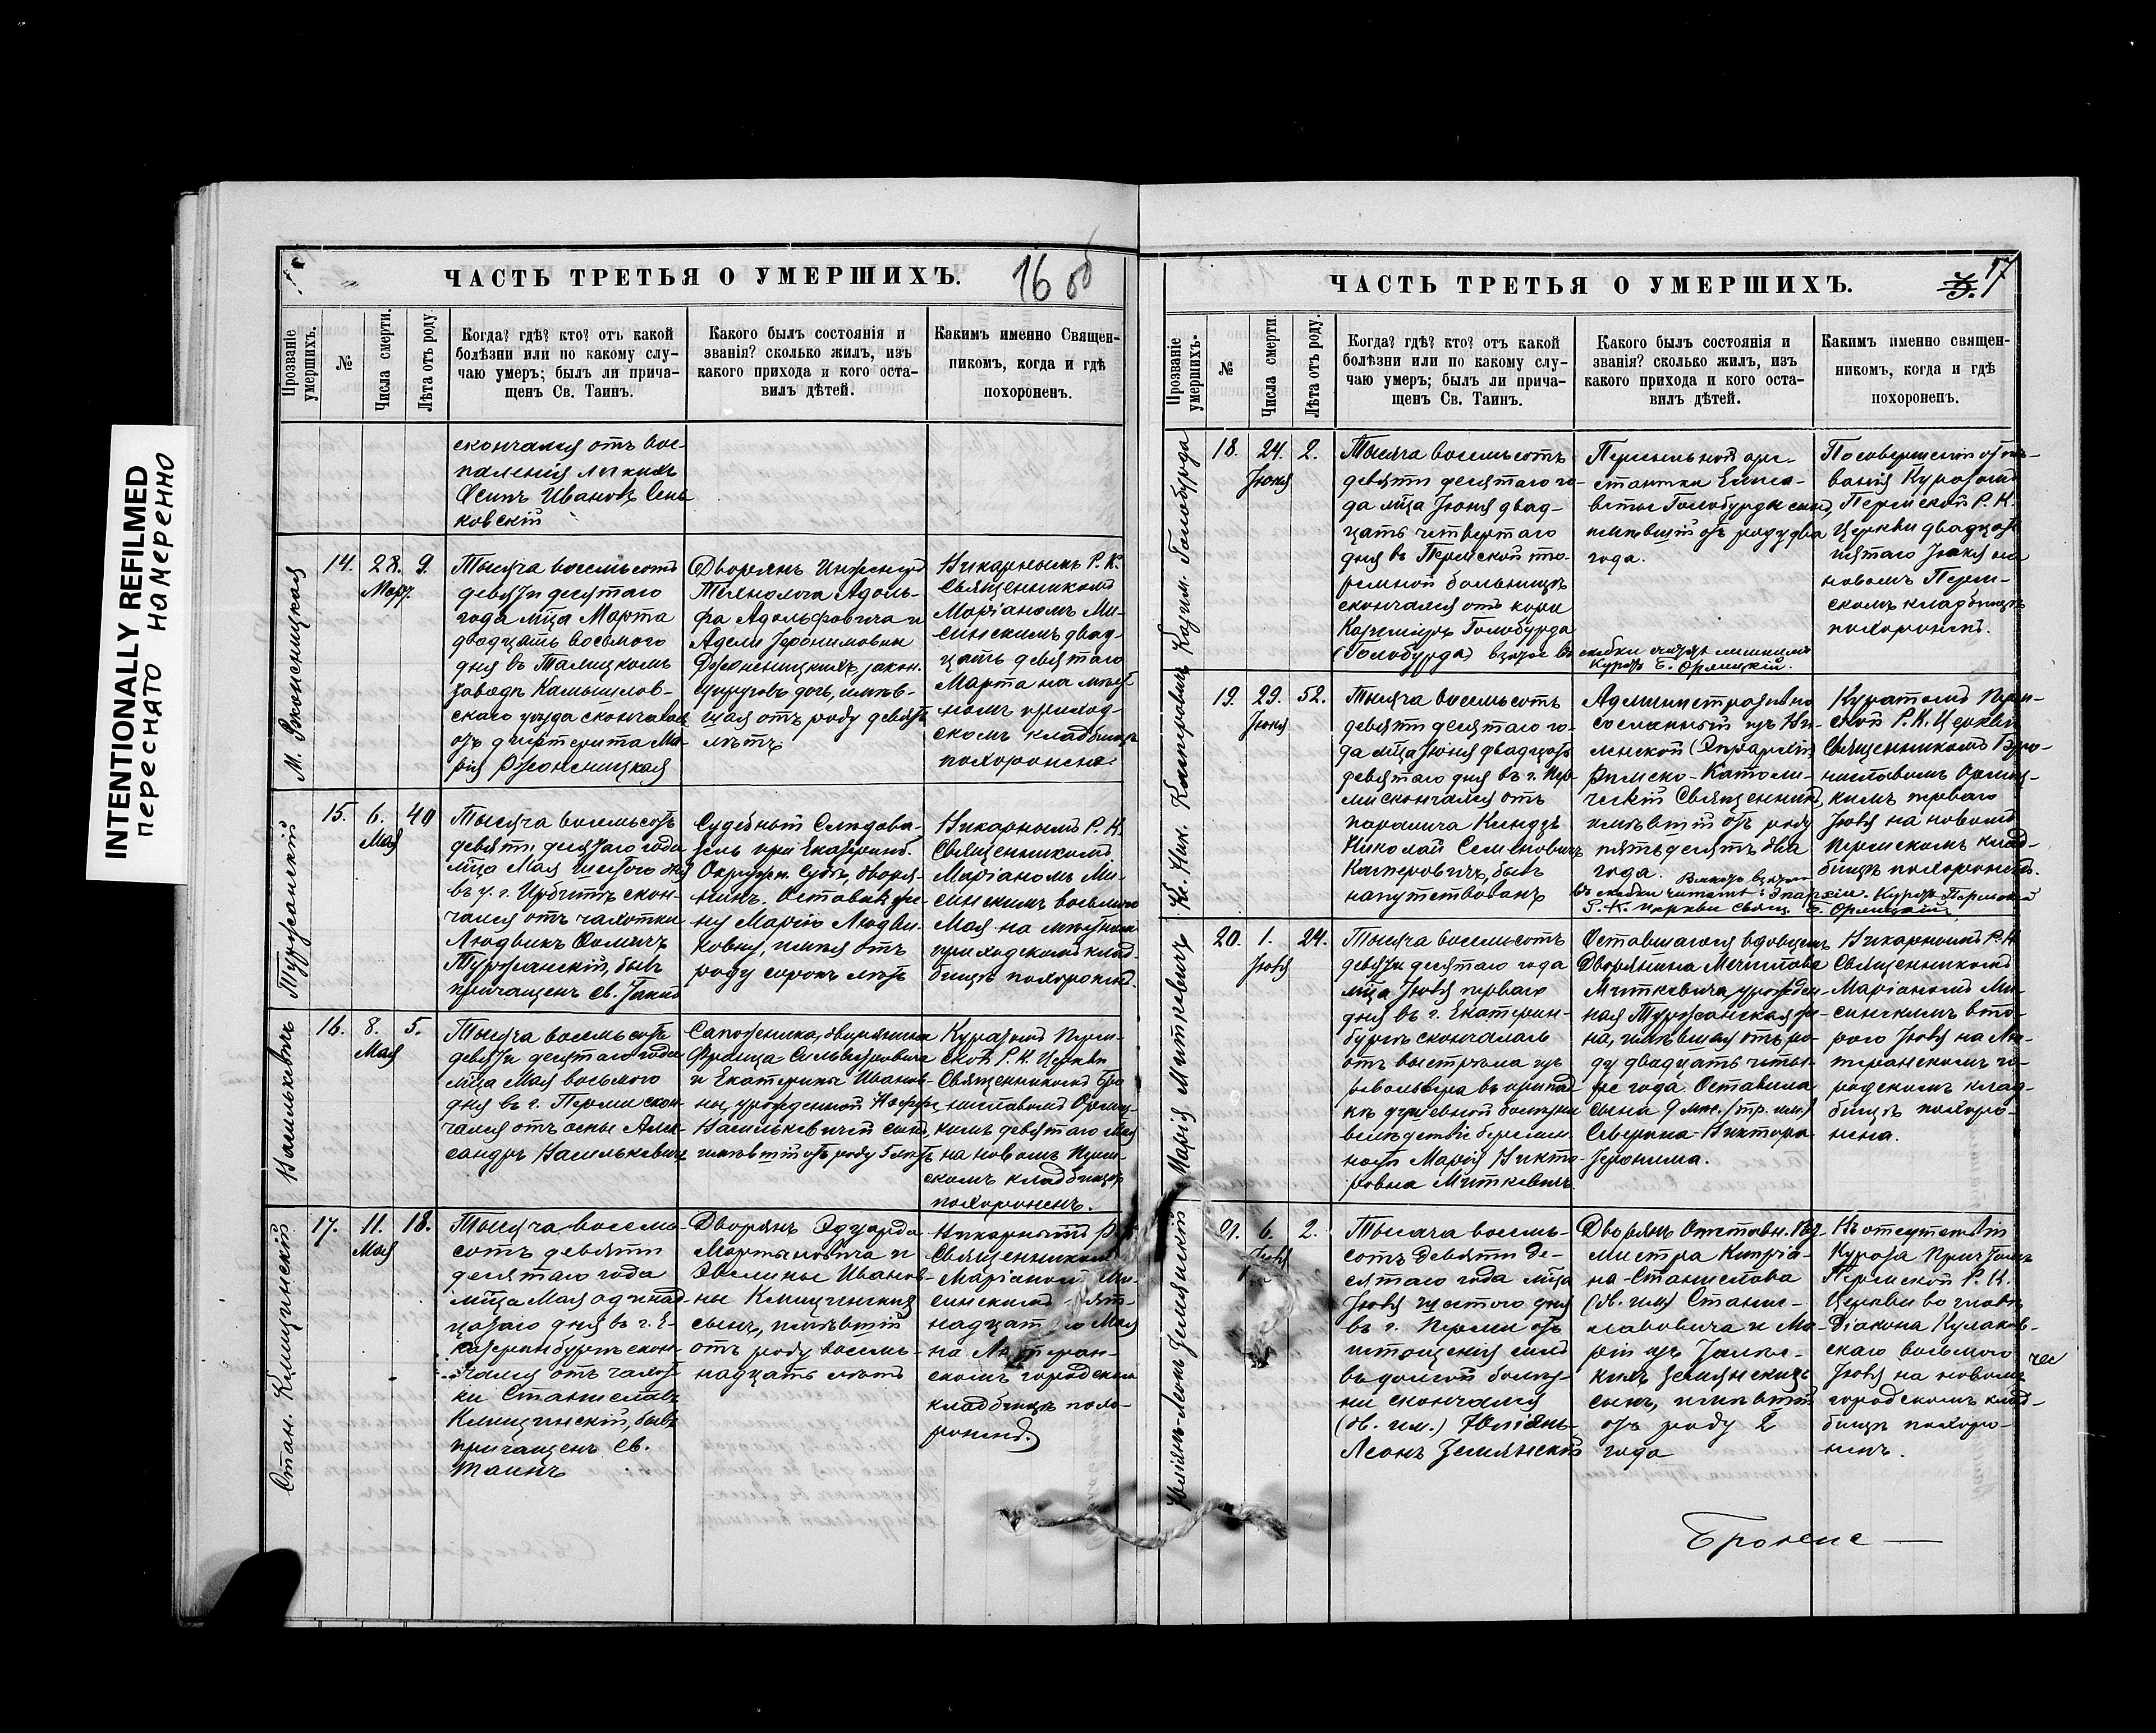 INTENTIONALLY REFILMED
пересНято НаМеренНо
ЧАСТЬ ТРЕТЬЯ О УМЕРШИХЪ.
16 об
Прозваніе умершихъ.
№
Числа смерти.
Лѣта отъ роду
Когда? гдѣ? кто? отъ какой
болѣзни или по какому слу-
чаю умеръ; былъ ли прича-
щенъ Св. Таинъ.
Какого былъ состоянія и
званія? сколько жилъ, изъ
какого прихода и кого оста-
вилъ дѣтей.
Какимъ именно Священ-
никомъ, когда и гдѣ
похороненъ.
скончался отъ вос-
паленія легкихъ
Осипъ Ивановъ Сень
ковскій
14.
28.
Мар.
9.
Тысяча восемьсотъ
девяти десятаго
года мѣца Марта
двадцать восьмого
дня въ Талицкомъ
заводѣ Камышлов-
скаго уѣзда скончалась
отъ дифтерита Ма-
рія
Дворянъ Инженера
Технолога Адоль-
фа Адольфовича и
Адели Іеронимовны
закон.
супруговъ дочь, имѣв-
шая отъ роду девять
лѣтъ
Викарнымъ Р. К.
Священникомъ
Маріаномъ Ми-
синскимъ двад-
цать девятаго
Марта на мѣст
номъ приход-
скомъ кладбищѣ
похоронена.
Туржанскій
15.
6.
Мая
40
Тысяча восемьсотъ
девяти десятаго года
мѣца Мая шестого дня
въ у. г. Ирбитѣ скон-
чался отъ чахотки
Людвикъ
Туржанскій, бывъ
причащенъ Св. Таинъ
Судебный Слѣдова-
тель при Екатеринб.
Окружн. Судѣ, дворя-
нинъ. Оставивъ же-
ну Марію Людви-
ковну, имѣя отъ
роду сорокъ лѣтъ
Викарнымъ Р. К.
Священникомъ
Маріаномъ Ми-
синскимъ восьмого
Мая на мѣстномъ
приходскомъ клад-
бищѣ похороненъ.
Василькевичъ
16.
8.
Мая
5.
Тысяча восемьсотъ
девяти десятаго года
мѣца Мая восьмого
дня въ г. Перми скон-
чался отъ оспы Алек-
сандръ Василькевичъ
Сапожника, дворянина
Франца Сильвестровича
и Екатерины Иванов-
ны, урожденной
Василькевичей сынъ,
имѣвшій отъ роду 5 лѣтъ
Куратомъ Перм-
ской Р. К. Церкви
Священникомъ Бро
ниславомъ Орлиц-
кимъ девятаго Мая
на новомъ Перм-
скомъ кладбищѣ
похороненъ.
Стан. Клищинскій
17.
11.
Мая
18.
Тысяча восемь-
сотъ девяти
десятаго года
мѣца Мая одиннад-
цатаго дня въ г. Е-
катеринбургѣ скон-
чался отъ чахот-
ки Станиславъ
Клищинскій, бывъ
причащенъ Св.
Таинъ
Дворянъ Эдуарда
Мартыновича и
Эвелины Иванов-
ны Клищинскихъ
сынъ, имѣвшій
отъ роду восемь-
надцать лѣтъ
Викарнымъ Р. К.
Священникомъ
Маріаномъ Ми-
синскимъ пят-
надцатаго Мая
на Лютеран-
скомъ городскомъ
кладбищѣ похо-
роненъ.
ЧАСТЬ ТРЕТЬЯ О УМЕРШИХЪ.
17
Прозваніе умершихъ.
№
Числа смерти.
Лѣта отъ роду.
Когда? гдѣ? кто? отъ какой
болѣзни или по какому слу-
чаю умеръ; былъ ли прича-
щенъ Св. Таинъ.
Какого былъ состоянія и
званія? сколько жилъ, изъ
какого прихода и кого оста-
вилъ дѣтей.
Какимъ именно священ-
никомъ, когда и гдѣ
похороненъ.
Казим. Голобурда
18.
24.
Іюня
2.
Тысяча восемьсотъ
девяти десятаго го-
да мѣца Іюня двад-
цать четвертаго
дня въ Пермской тю-
ремной больницѣ
скончался отъ кори
Казиміръ Голобурда
(Голобурда) взятое въ
Пересыльной аре-
стантки Елиса-
веты Голобурды сынъ,
имѣвшій отъ роду два
года.
скобки считать лишнимъ
Куратъ Б. Орлицкій.
По совершеніи
Куратомъ
Пермской Р. К.
Церкви двадцать
пятаго Іюня на
новомъ Перм-
скомъ кладбищѣ
похороненъ.
Кс. Ник. Касперовичъ
19.
29.
Іюня
52.
Тысяча восемьсотъ
девяти десятаго го-
да мѣца Іюня двадцать
девятаго дня въ г. Пер-
ми скончался отъ
паралича Ксендзъ
Николай Семеновичъ
Касперовичъ, бывъ
напутствованъ
Административно
сосланный изъ Ви-
ленской (Эпархіи)
Римско-Католи-
ческій Священникъ,
имѣвшій отъ роду
пятьдесятъ два
года.
въ скобки читать: Эпархіи. Куратъ Пермской
Р. К. церкви свящ. Б. Орлицкій
Куратомъ Перм-
ской Р. К. Церкви
Священникомъ Бро-
ниславомъ Орлиц-
кимъ перваго
Іюля на новомъ
Пермскомъ клад-
бищѣ похороненъ.
Марія Миткевичъ
20.
1.
Іюля
24.
Тысяча восемьсотъ
девяти десятаго года
мѣца Іюля перваго
дня въ г. Екатерин-
бургѣ скончалась
отъ выстрѣла изъ
револьвера въ припад-
кѣ душевной болѣзни
вслѣдствіе беремен-
ности Марія Викто-
ровна Миткевичъ
Оставшагося вдовцомъ
Дворянина Мечислава
Миткевича, урожден-
ная Туржанская же-
на, имѣвшая отъ ро-
ду двадцать четы-
ре года. Оставила
сына 9 мѣс. (тр. им)
Северина-Виктора-
Іеронима.
Викарнымъ Р. К.
Священникомъ
Маріаномъ Ми-
синскимъ вто-
рого Іюля на Лю-
теранскомъ го-
родскомъ клад-
бищѣ похоро-
нена.
Юліянъ-Леонъ Землянскій
21.
6.
Іюля
2.
Тысяча восемь-
сотъ девяти де-
сятаго года мѣца
Іюля шестого дня
въ г. Перми отъ
истощенія силъ
въ долгой болѣз-
ни скончался
(дв. им.) Юліянъ-
Леонъ Землянскій
Дворянъ Отставн.
мистра Кипріа-
на-Станислава
(дв. им) Станис-
лавовича и Ма-
ріи изъ
Землянскихъ
сынъ, имѣвшій
отъ роду 2
года
Въ отсутствіи
Курата Причтомъ
Пермской Р. К.
Церкви во главѣ
Діакона Кулаков-
скаго восьмого
Іюля на новомъ
городскомъ клад-
бищѣ похоро-
ненъ.